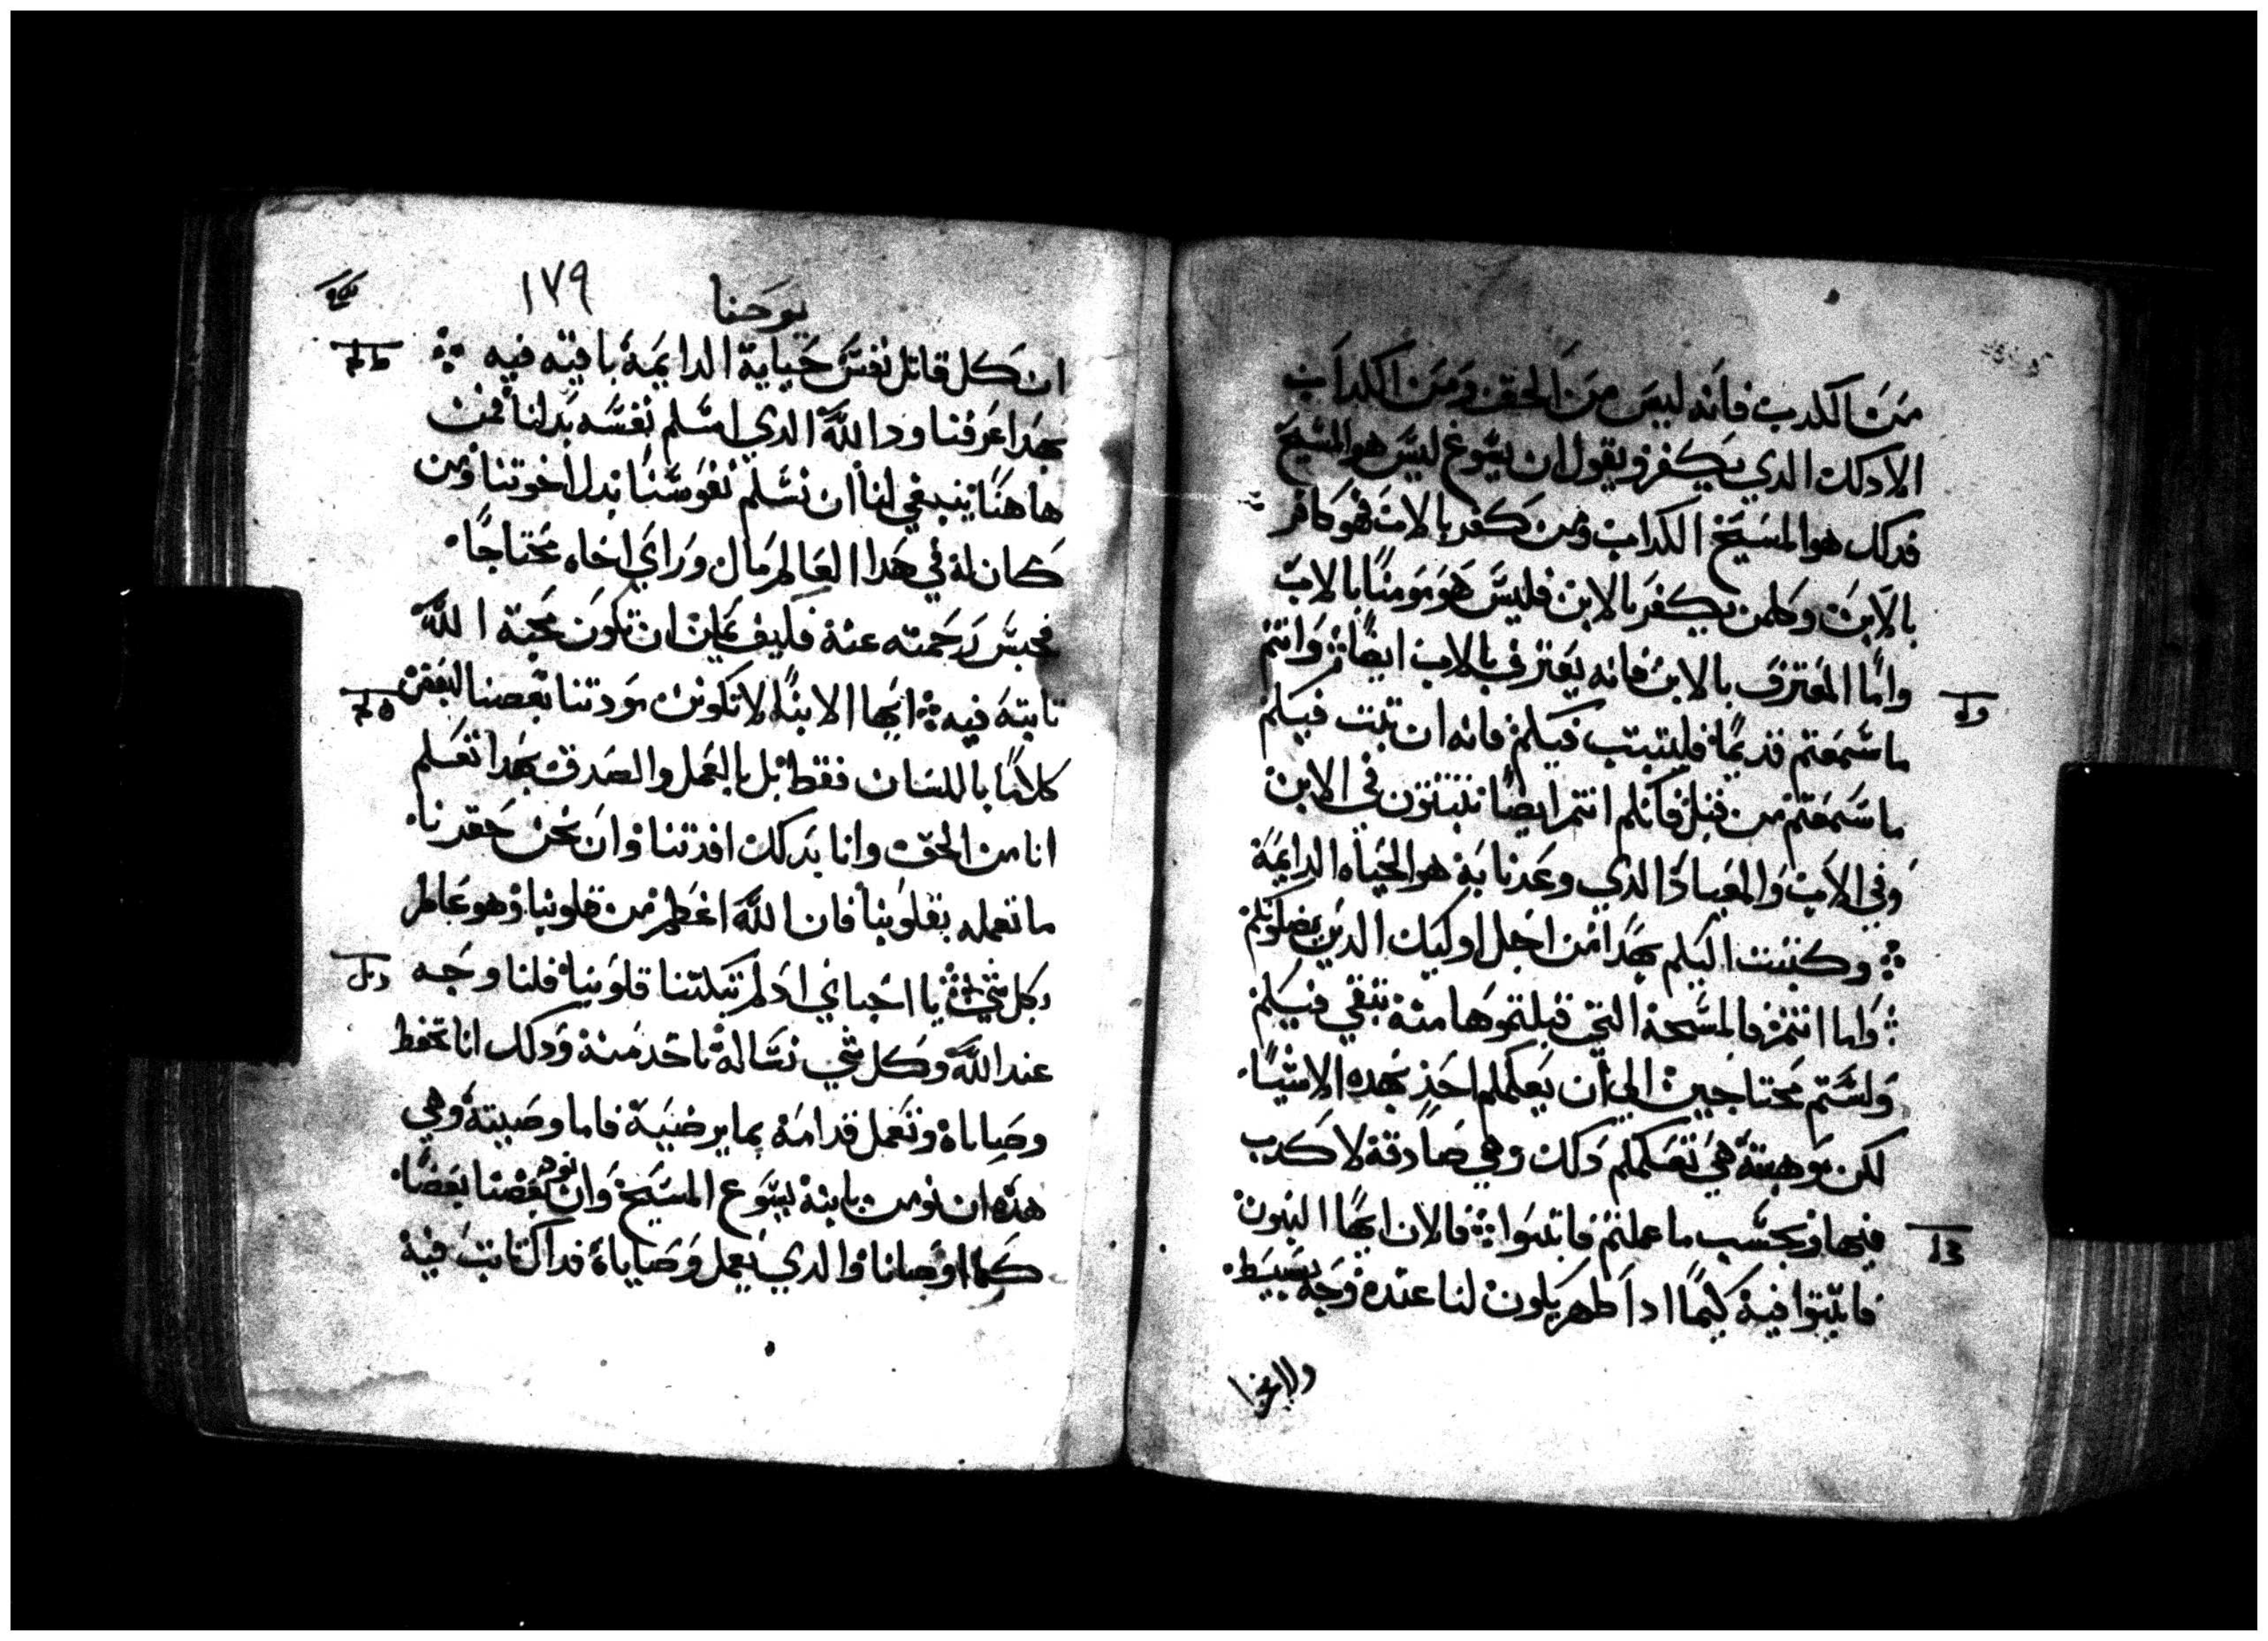 من الكدب فانه ليس من الحق ومن الكداب
الا دلك الدي يكفر ويقول ان يسوع ليس هو المسيح
فدلك هو المسيح الكداب ومن كفر بالاب فهو كافر
بالابن وكلمن يكفر بالابن فليس هو مومنا بالاب
واما المعترف بالابن فانه يعترف بالاب ايضا وانتم
ما سمعتم قديما فليتبت فيكم فانه ان تبت فيكم
ما سمعتم من قبل فانكم انتم ايضا تتبتون في الابن
وفي الاب والميعاد الدي وعدنا به هو الحياه الدايمة
وكتبت اليكم بهدا من اجل اوليك الدين يضلونكم
واما انتم فالمسحة التي قبلتموها منه تبقي فيكم
ولستم محتاجين الي ان يعلمكم احد بهده الاشيا
لكن موهبته هي تعلمكم دلك وهي صادقة لا كدب
فيها وبحسب ما علمتم فاتبتوا فالان ايها البنون
فاتبتوا فيه كيما ادا ظهر يكون لنا عنده وجه بسيط
ولا نخزا
يوحنا
١٧٩
ان كل قاتل نفس حياية الدايمة باقيه فيه
بهدا عرفنا ود الله الدي اسلم نفسه بدلنا فمن
هاهنا ينبغي لنا ان نسلم نفوسنا بدل اخوتنا ومن
كان له في هدا العالم مال وراي اخاه محتاجا
فحبس رحمته عنه فكيف يمكن ان تكون محبة الله
تابته فيه ايها الابنا لا تكونن مودتنا بعضنا لبعض
كلاما باللسان فقط بل بالعمل والصدق بهدا نعلم
انا من الحق وانا بدلك افدتنا وان نحن حقدنا
ما نعمله بقلوبنا فان الله اعظم من قلوبنا وهو عالم
بكل شي يا احباي اد لم تبكتنا قلوبنا فلنا وجه
عند الله وكل شي نساله ناخد منه ودلك انا نحفظ
وصاياه ونعمل قدامه بما يرضيه فاما وصيته وهي
هده ان نومن بابنه يسوع المسيح وان نود بعضنا بعضا
كما اوصانا والدي يعمل وصاياه فداك تابت فيه